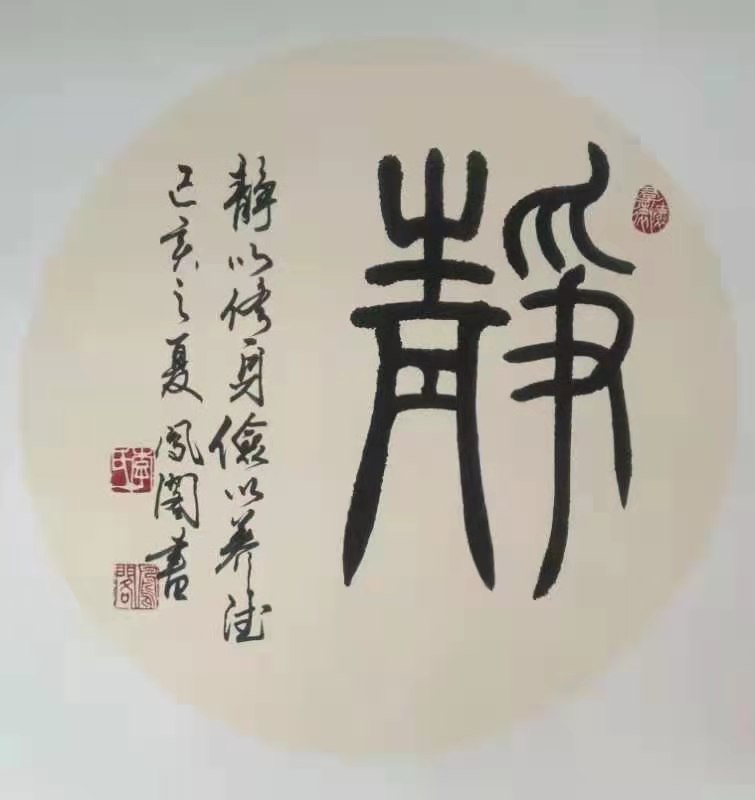 靜
靜以修身儉以養德
己亥之夏鳳閣書
李氏
鳳閣